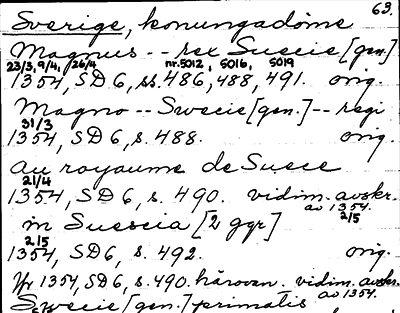 63.
Sverige, konungadöme
Magnus -- rex Suecie [gen.]
23/3, 9/4, 26/4 nr. 5012, 5016, 5019
1354, SD 6, ss. 486, 488, 491. orig.
Magno -- Swecie [gen.] -- regi
31/3
1354, SD 6, s. 488. orig.
au royaume de Suece
21/4
1354, SD 6, s. 490. vidim. avskr.
av 1354.
in Suescia [2 ggr] 2/5
2/5
1354, SD 6, s. 492. orig.
Yfr 1354, SD 6, s. 490. härovan - vidim. avskr.
av 1354.
Swecie [gen.] primatis